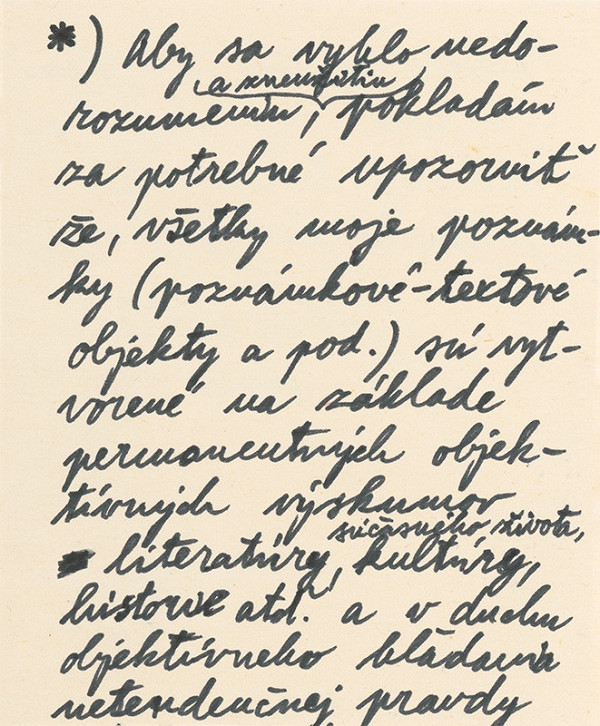 *) Aby sa vyhlo nedo-
a zneužitiu
rozumeniu, pokladám
za potrebné upozorniť
že, všetky moje poznám-
ky (poznámkové-textové
objekty a pod.) sú vyt-
vorené na základe
permanentných objek-
tívnych výskumov
súčasného života,
literatúry, kultúry,
historie atď. a v duchu
objektívneho hľadania
netendenčnej pravdy